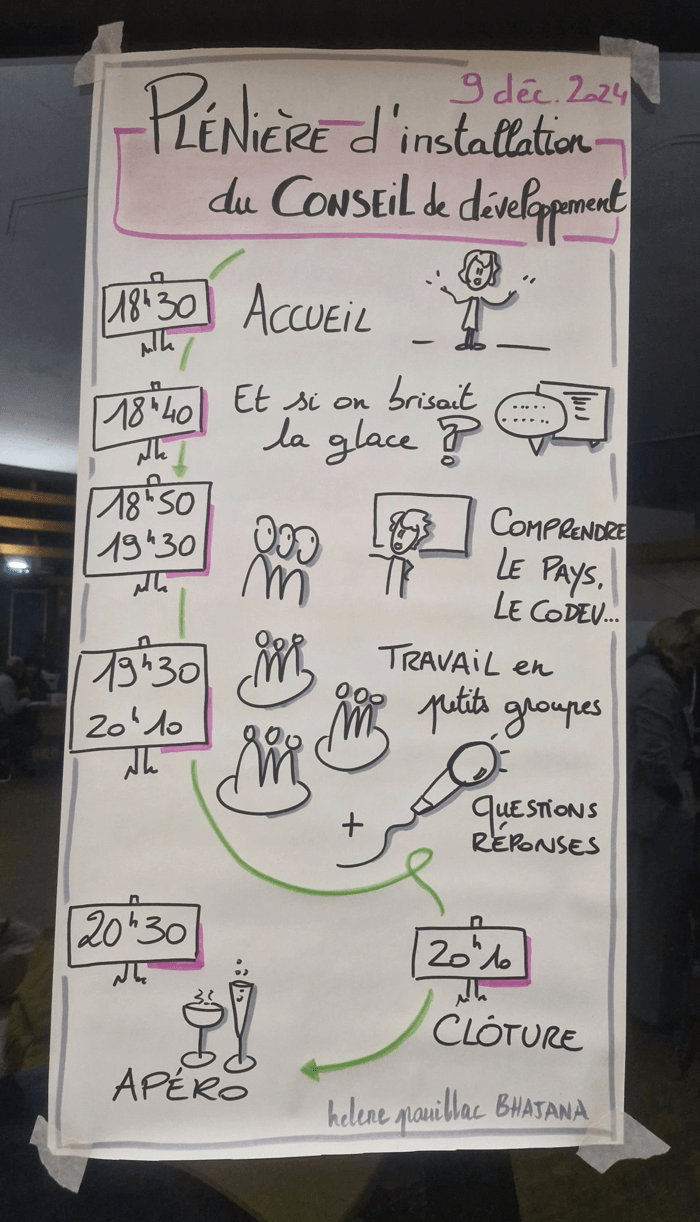 9 déc. 2024
PLÉNIÈRE d'installation
du CONSEIL de développement
18h30
ACCUEIL
18h40
Et si on brisait
la glace ?
18h50
19h30
COMPRENDRE
LE PAYS,
LE CODEV...
19h30
20h10
TRAVAIL en
petits groupes
+
QUESTIONS
RÉPONSES
20h10
CLÔTURE
20h30
APÉRO
helene pouillac BHAJANA